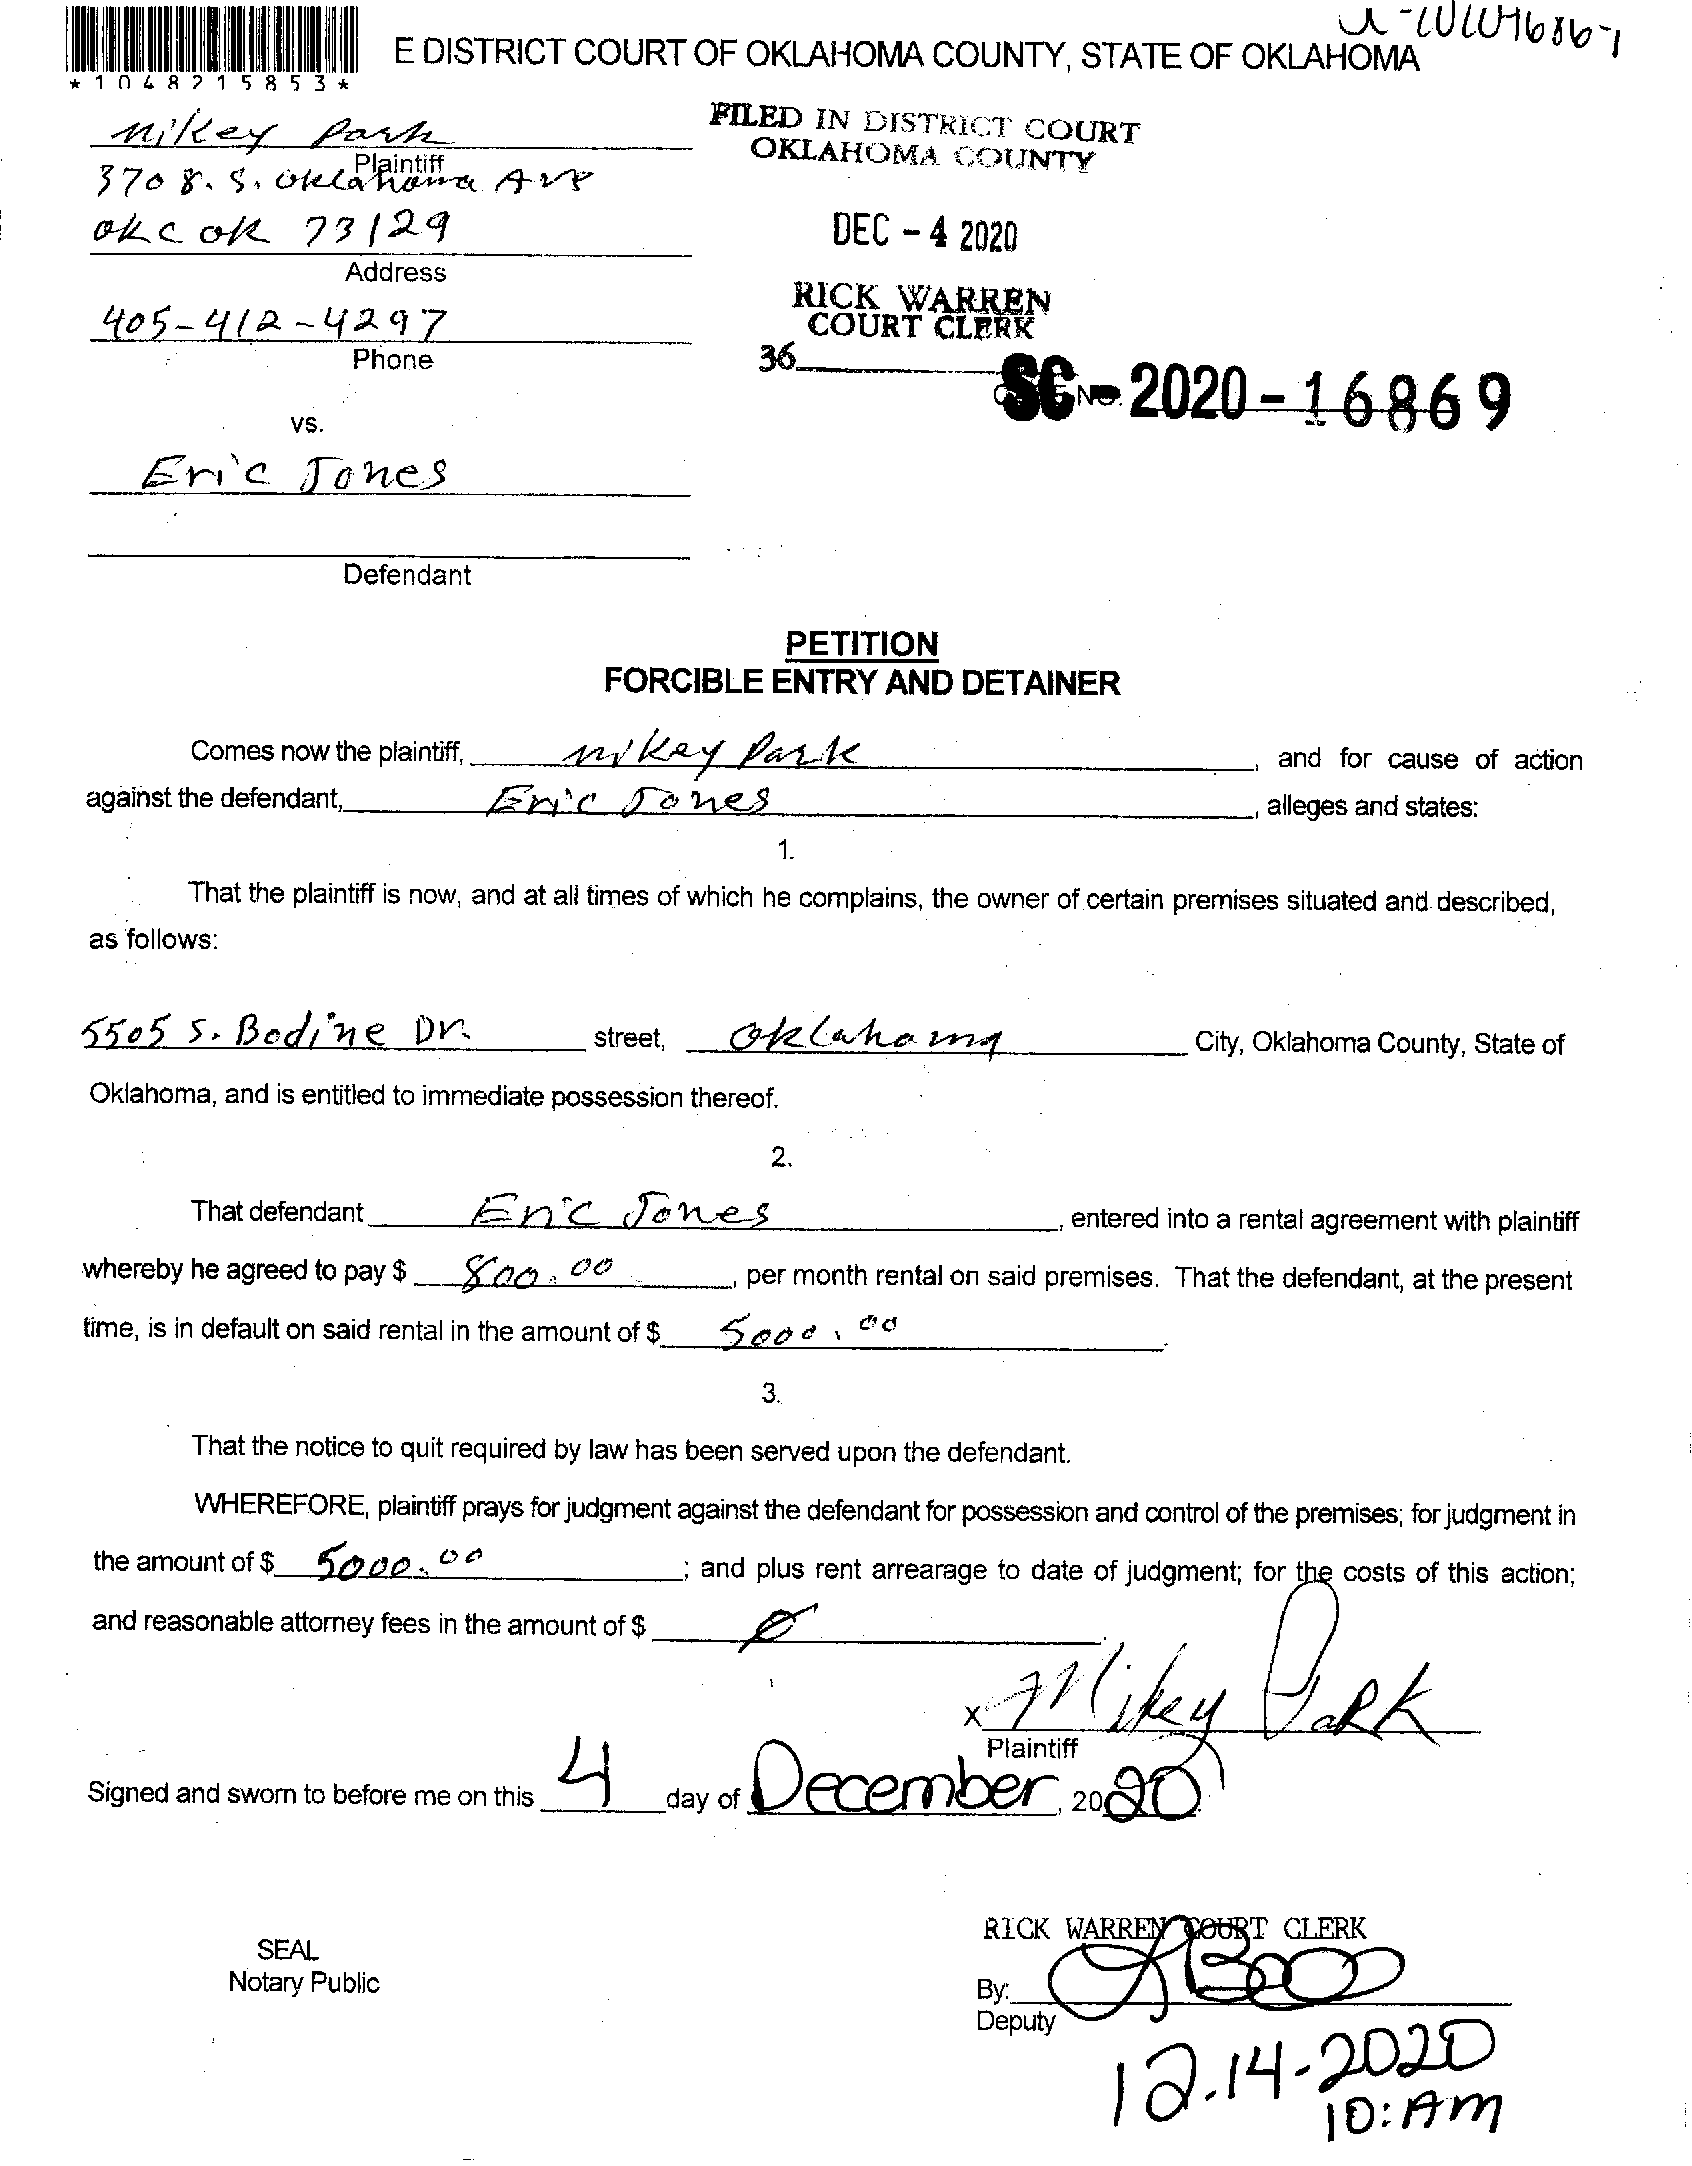 E DISTRICT COURT OF OKLAHOMA COUNTY, STATE OF OKLAHOMA
*1048215853*
Mikey Park
Plaintiff
3708. S. Oklahoma Ave
OKC OK 73129
Address
405-412-4297
Phone
FILED IN DISTRICT COURT
OKLAHOMA COUNTY
DEC - 4 2020
RICK WARREN
COURT CLERK
36
SC - 2020 - 16869
vs.
Eric Jones
Defendant
PETITION
FORCIBLE ENTRY AND DETAINER
Comes now the plaintiff, Mikey Park, and for cause of action
against the defendant, Eric Jones, alleges and states:
1.
That the plaintiff is now, and at all times of which he complains, the owner of certain premises situated and described,
as follows:
5505 S. Bodine Dr. street, Oklahoma City, Oklahoma County, State of
Oklahoma, and is entitled to immediate possession thereof.
2.
That defendant Eric Jones, entered into a rental agreement with plaintiff
whereby he agreed to pay $ 800.00, per month rental on said premises. That the defendant, at the present
time, is in default on said rental in the amount of $ 5000.00
3.
That the notice to quit required by law has been served upon the defendant.
WHEREFORE, plaintiff prays for judgment against the defendant for possession and control of the premises; for judgment in
the amount of $ 5000.00; and plus rent arrearage to date of judgment; for the costs of this action;
and reasonable attorney fees in the amount of $ ø
x Mikey Park
Plaintiff
Signed and sworn to before me on this 4 day of December, 2020
SEAL
Notary Public
RICK WARREN COURT CLERK
By:
Deputy
12.14-2020
10:AM